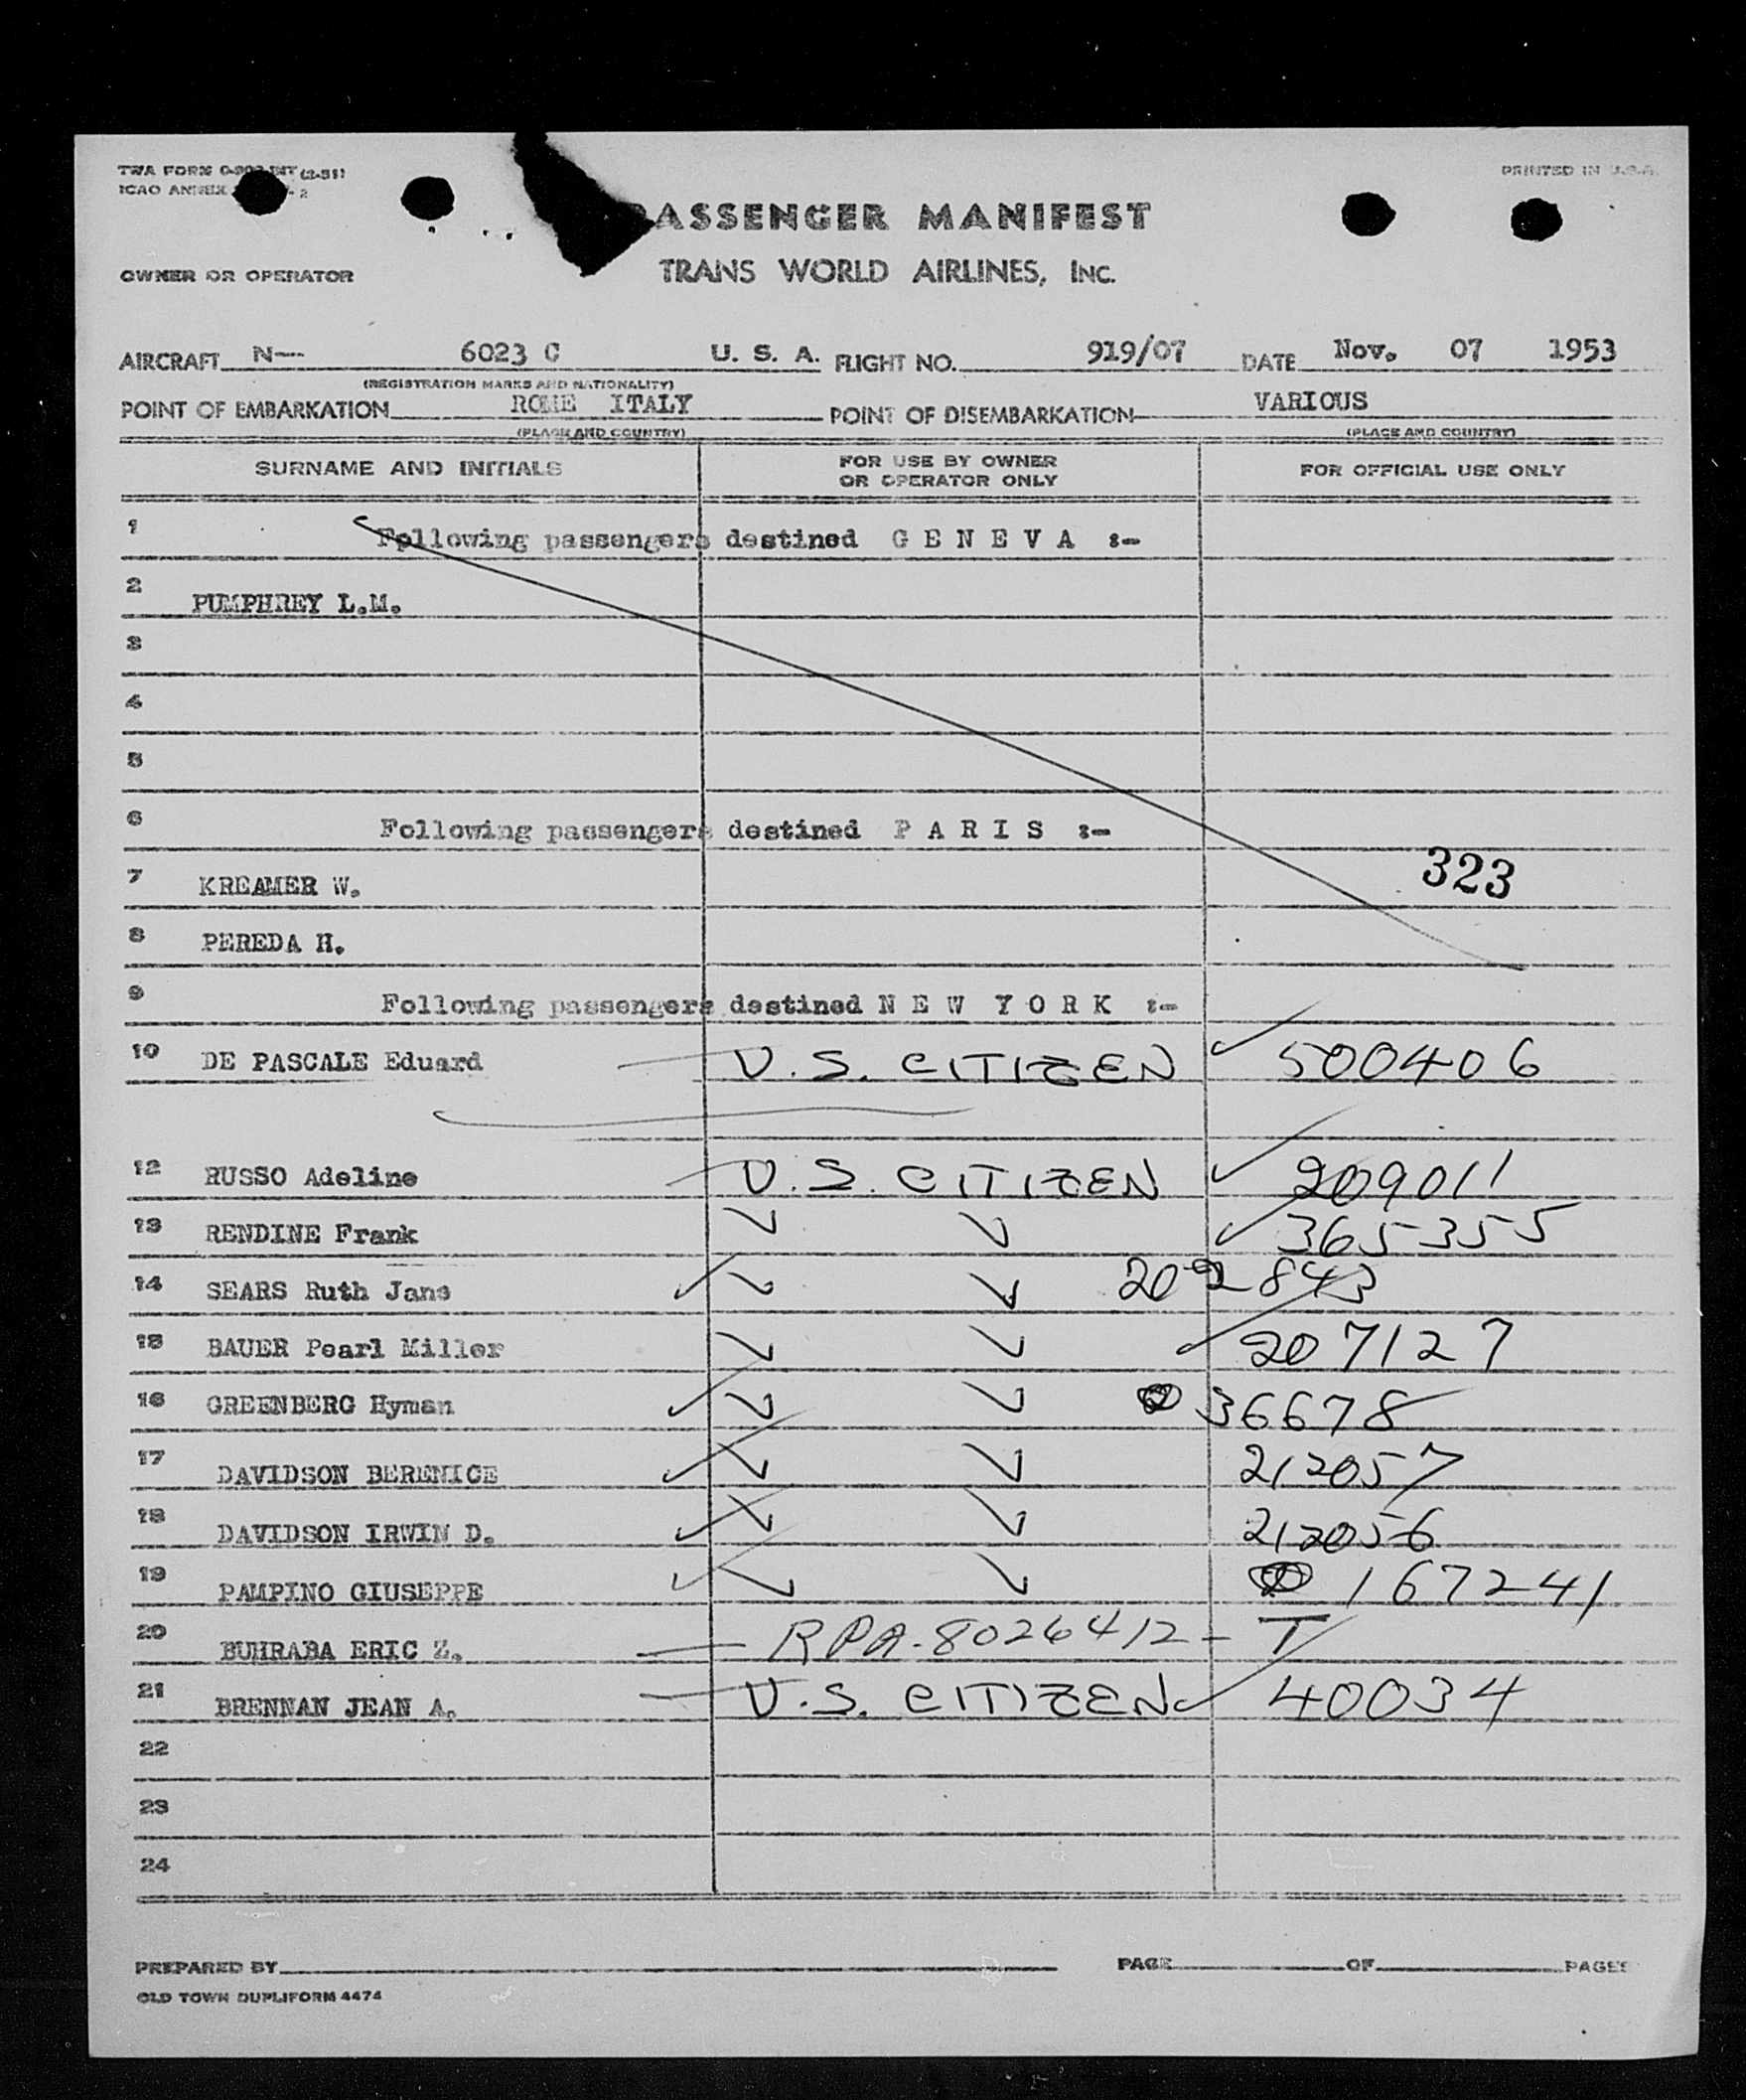 TWA FORM INT (2-51)
PRINTED IN U.S.A.
ICAO ANNEX 2
PASSENGER MANIFEST
OWNER OR OPERATOR
TRANS WORLD AIRLINES, INC.
AIRCRAFT N— 6023 C U. S. A. FLIGHT NO. 919/07 DATE Nov. 07 1953
(REGISTRATION MARKS AND NATIONALITY)
POINT OF EMBARKATION ROME ITALY POINT OF DISEMBARKATION VARIOUS
(PLACE AND COUNTRY) (PLACE AND COUNTRY)
SURNAME AND INITIALS FOR USE BY OWNER OR OPERATOR ONLY FOR OFFICIAL USE ONLY
1 Following passengers destined G E N E V A :-
2 PUMPHREY L.M.
3
4
5
6 Following passengers destined P A R I S :-
7 KREAMER W. 323
8 PEREDA H.
9 Following passengers destined N E W Y O R K :-
10 DE PASCALE Eduard — U.S. CITIZEN ✓ 500406
12 RUSSO Adeline — U.S. CITIZEN ✓ 209011
13 RENDINE Frank ✓ ✓ ✓ 365355
14 SEARS Ruth Jane ✓ ✓ ✓ 202843
15 BAUER Pearl Miller ✓ ✓ ✓ 207127
16 GREENBERG Hyman ✓ ✓ ✓ 36678
17 DAVIDSON BERENICE ✓ ✓ ✓ 212057
18 DAVIDSON IRWIN D. ✓ ✓ ✓ 212056
19 PAMPINO GIUSEPPE ✓ ✓ ✓ 167241
20 BUHRABA ERIC Z. — RPA-8026412 - T
21 BRENNAN JEAN A. — U.S. CITIZEN ✓ 40034
22
23
24
PREPARED BY PAGE OF PAGES
OLD TOWN DUPLIFORM 4474